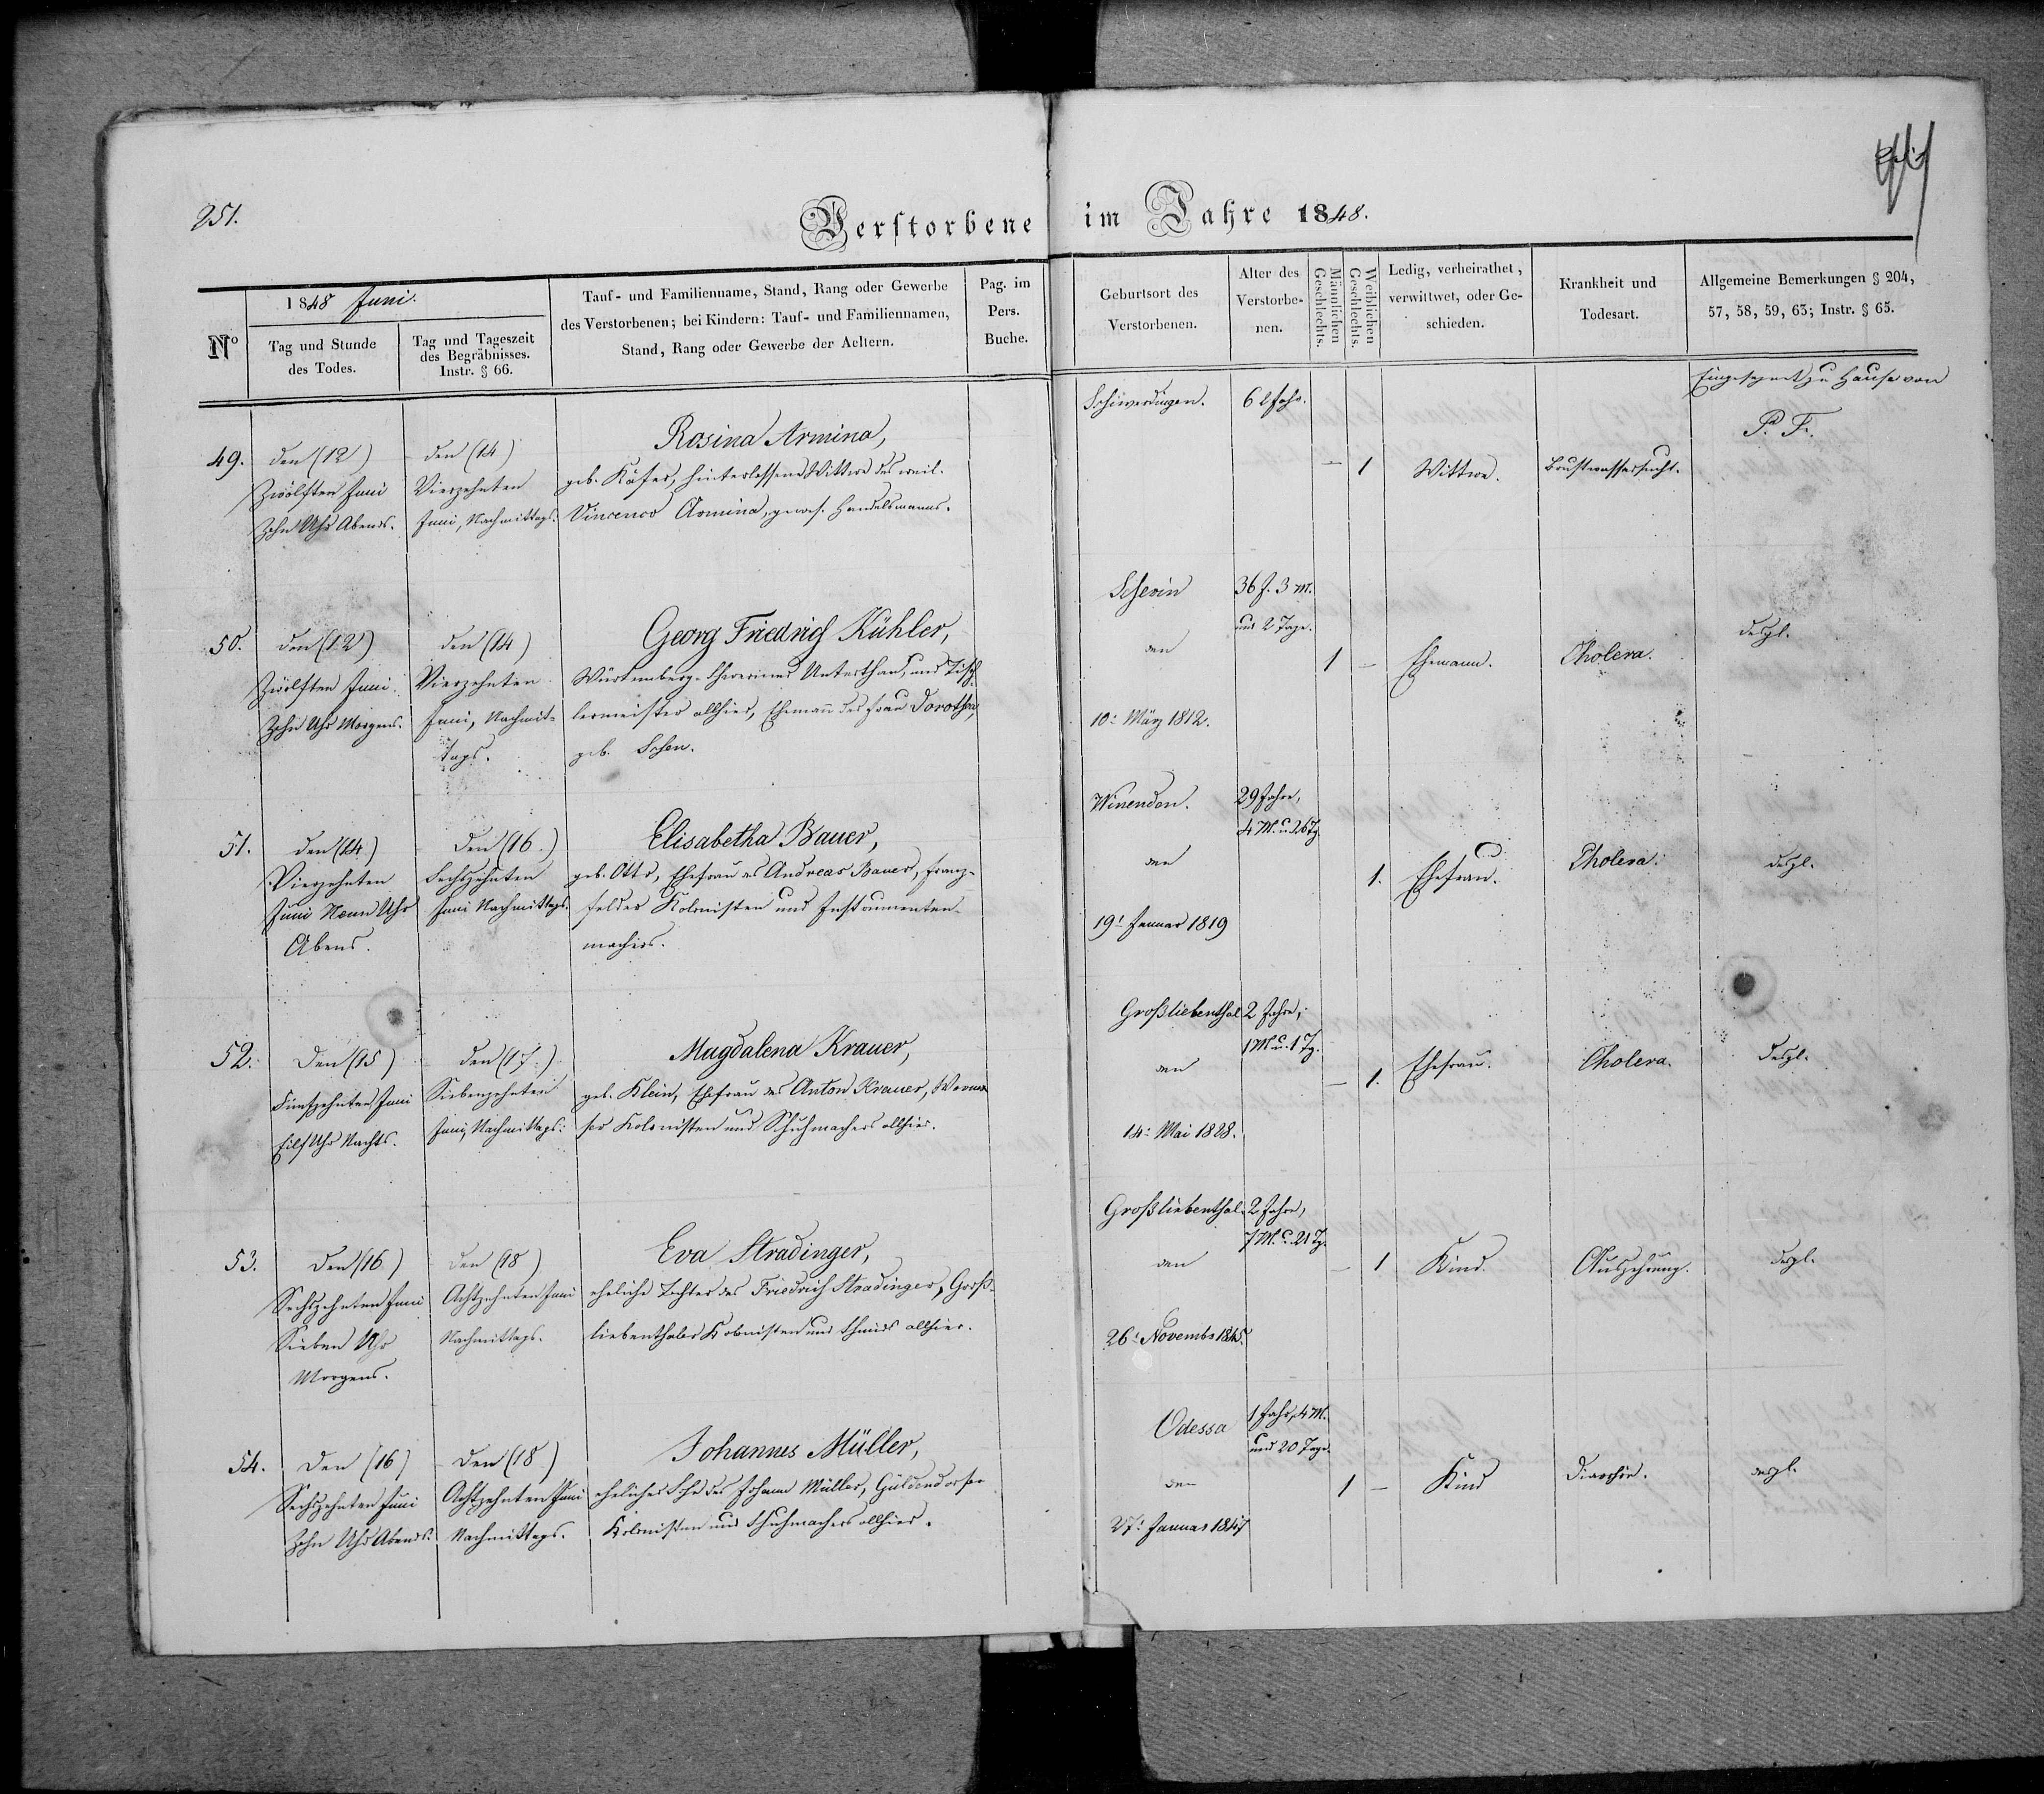 251.
Verstorbene im Jahre 1848.
Nº
1848 Juni.
Tag und Stunde
des Todes.
Tag und Tageszeit
des Begräbnisses.
Instr. § 66.
Tauf- und Familienname, Stand, Rang oder Gewerbe
des Verstorbenen; bei Kindern: Tauf- und Familiennamen,
Stand, Rang oder Gewerbe der Aeltern.
Pag. im
Pers.
Buche.
Geburtsort des
Verstorbenen.
Alter des
Verstorbe-
nen.
Männlichen
Geschlechts.
Weiblichen
Geschlechts.
Ledig, verheirathet,
verwittwet, oder Ge-
schieden.
Krankheit und
Todesart.
Allgemeine Bemerkungen § 204,
57, 58, 59, 63; Instr. § 65.
49.
den (12)
Zwölften Juni
Zehn Uhr Abends.
den (14)
Vierzehnten
Juni, Nachmittags.
Rosina Armina,
geb. Käfer, hinterlassene Wittwe des weil.
Vincenco Armina, gewes. Handelsmanns.
Schwerdingen.
62 Jahr.
– 1
Wittwe.
Brustwassersucht.
Eingesegnet zu Hause von
P. F.
50.
den (12)
Zwölften Juni
Zehn Uhr Morgens.
den (14)
Vierzehnten
Juni, Nachmit-
tags.
Georg Friedrich Kühler,
Würtemberg- Unterthan, und Tisch-
lermeister allhier, Ehemann der Frau Dorothea,
geb. Schen.
den
10. März 1812.
36 J. 3 M.
und 2 Tage.
1 –
Ehemann.
Cholera.
desgl.
51.
den (14)
Vierzehnten
Juni Neun Uhr
Abens.
den (16.)
Sechszehnten
Juni Nachmittags.
Elisabetha Bauer,
geb. Otto, Ehefrau des Andreas Bauer, Franz-
felder Kolonisten und Instrumenten-
machers.
Winenden.
den
19. Januar 1819
29 Jahre,
4 M. u. 26 Tg.
1.
Ehefrau.
Cholera.
desgl.
52.
den (15)
Fünfzehnten Juni
Eilf Uhr Nachts.
den (17.)
Siebenzehnten
Juni, Nachmittags.
Magdalena Krauer,
geb. Klein, Ehefrau des Anton Krauer,
Kolonisten und Schuhmachers allhier.
Großliebenthal
den
14. Mai 1828.
2 Jahre,
1 M u. 1 Tg.
– 1.
Ehefrau.
Cholera.
desgl.
53.
den (16)
Sechszehnten Juni
Sieben Uhr
Morgens.
den (18)
Achtzehnten Juni
Nachmittags.
Eva Stradinger,
eheliche Tochter des Friedrich Stradinger, Groß-
liebenthaler Kolonisten und Schmids allhier.
Großliebenthal
den
26. Novembr 1845.
2 Jahre,
7 M. u. 21 Tg.
– 1
Kind.
Auszehrung.
desgl.
54.
den (16)
Sechszehnten Juni
Zehn Uhr Abends.
den (18)
Achtzehnten Juni
Nachmittags.
Johannes Müller,
ehelicher Sohn des Johann Müller, Güldendorfer
Kolonisten und Schuhmachers allhier.
Odessa
den
27. Januar 1847
1 Jahr, 4 M.
und 20 Tage.
1 –
Kind
Diarrhöe.
desgl.